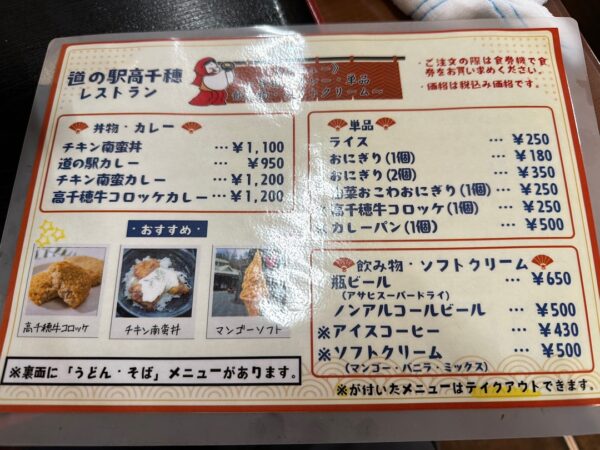 道の駅高千穂
レストラン
・ご注文の際は食券機で食
券をお買い求めください。
・価格は税込み価格です。
丼物・カレー
チキン南蛮丼 … ¥1,100
道の駅カレー … ¥950
チキン南蛮カレー … ¥1,200
高千穂牛コロッケカレー … ¥1,200
・おすすめ・
高千穂牛コロッケ
チキン南蛮丼
マンゴーソフト
※裏面に「うどん・そば」メニューがあります。
単品
ライス … ¥250
おにぎり(1個) … ¥180
おにぎり(2個) … ¥350
山菜おこわおにぎり(1個) … ¥250
高千穂牛コロッケ(1個) … ¥250
カレーパン(1個) … ¥500
飲み物・ソフトクリーム
瓶ビール … ¥650
(アサヒスーパードライ)
ノンアルコールビール … ¥500
※アイスコーヒー … ¥430
※ソフトクリーム … ¥500
(マンゴー・バニラ・ミックス)
※が付いたメニューはテイクアウトできます。